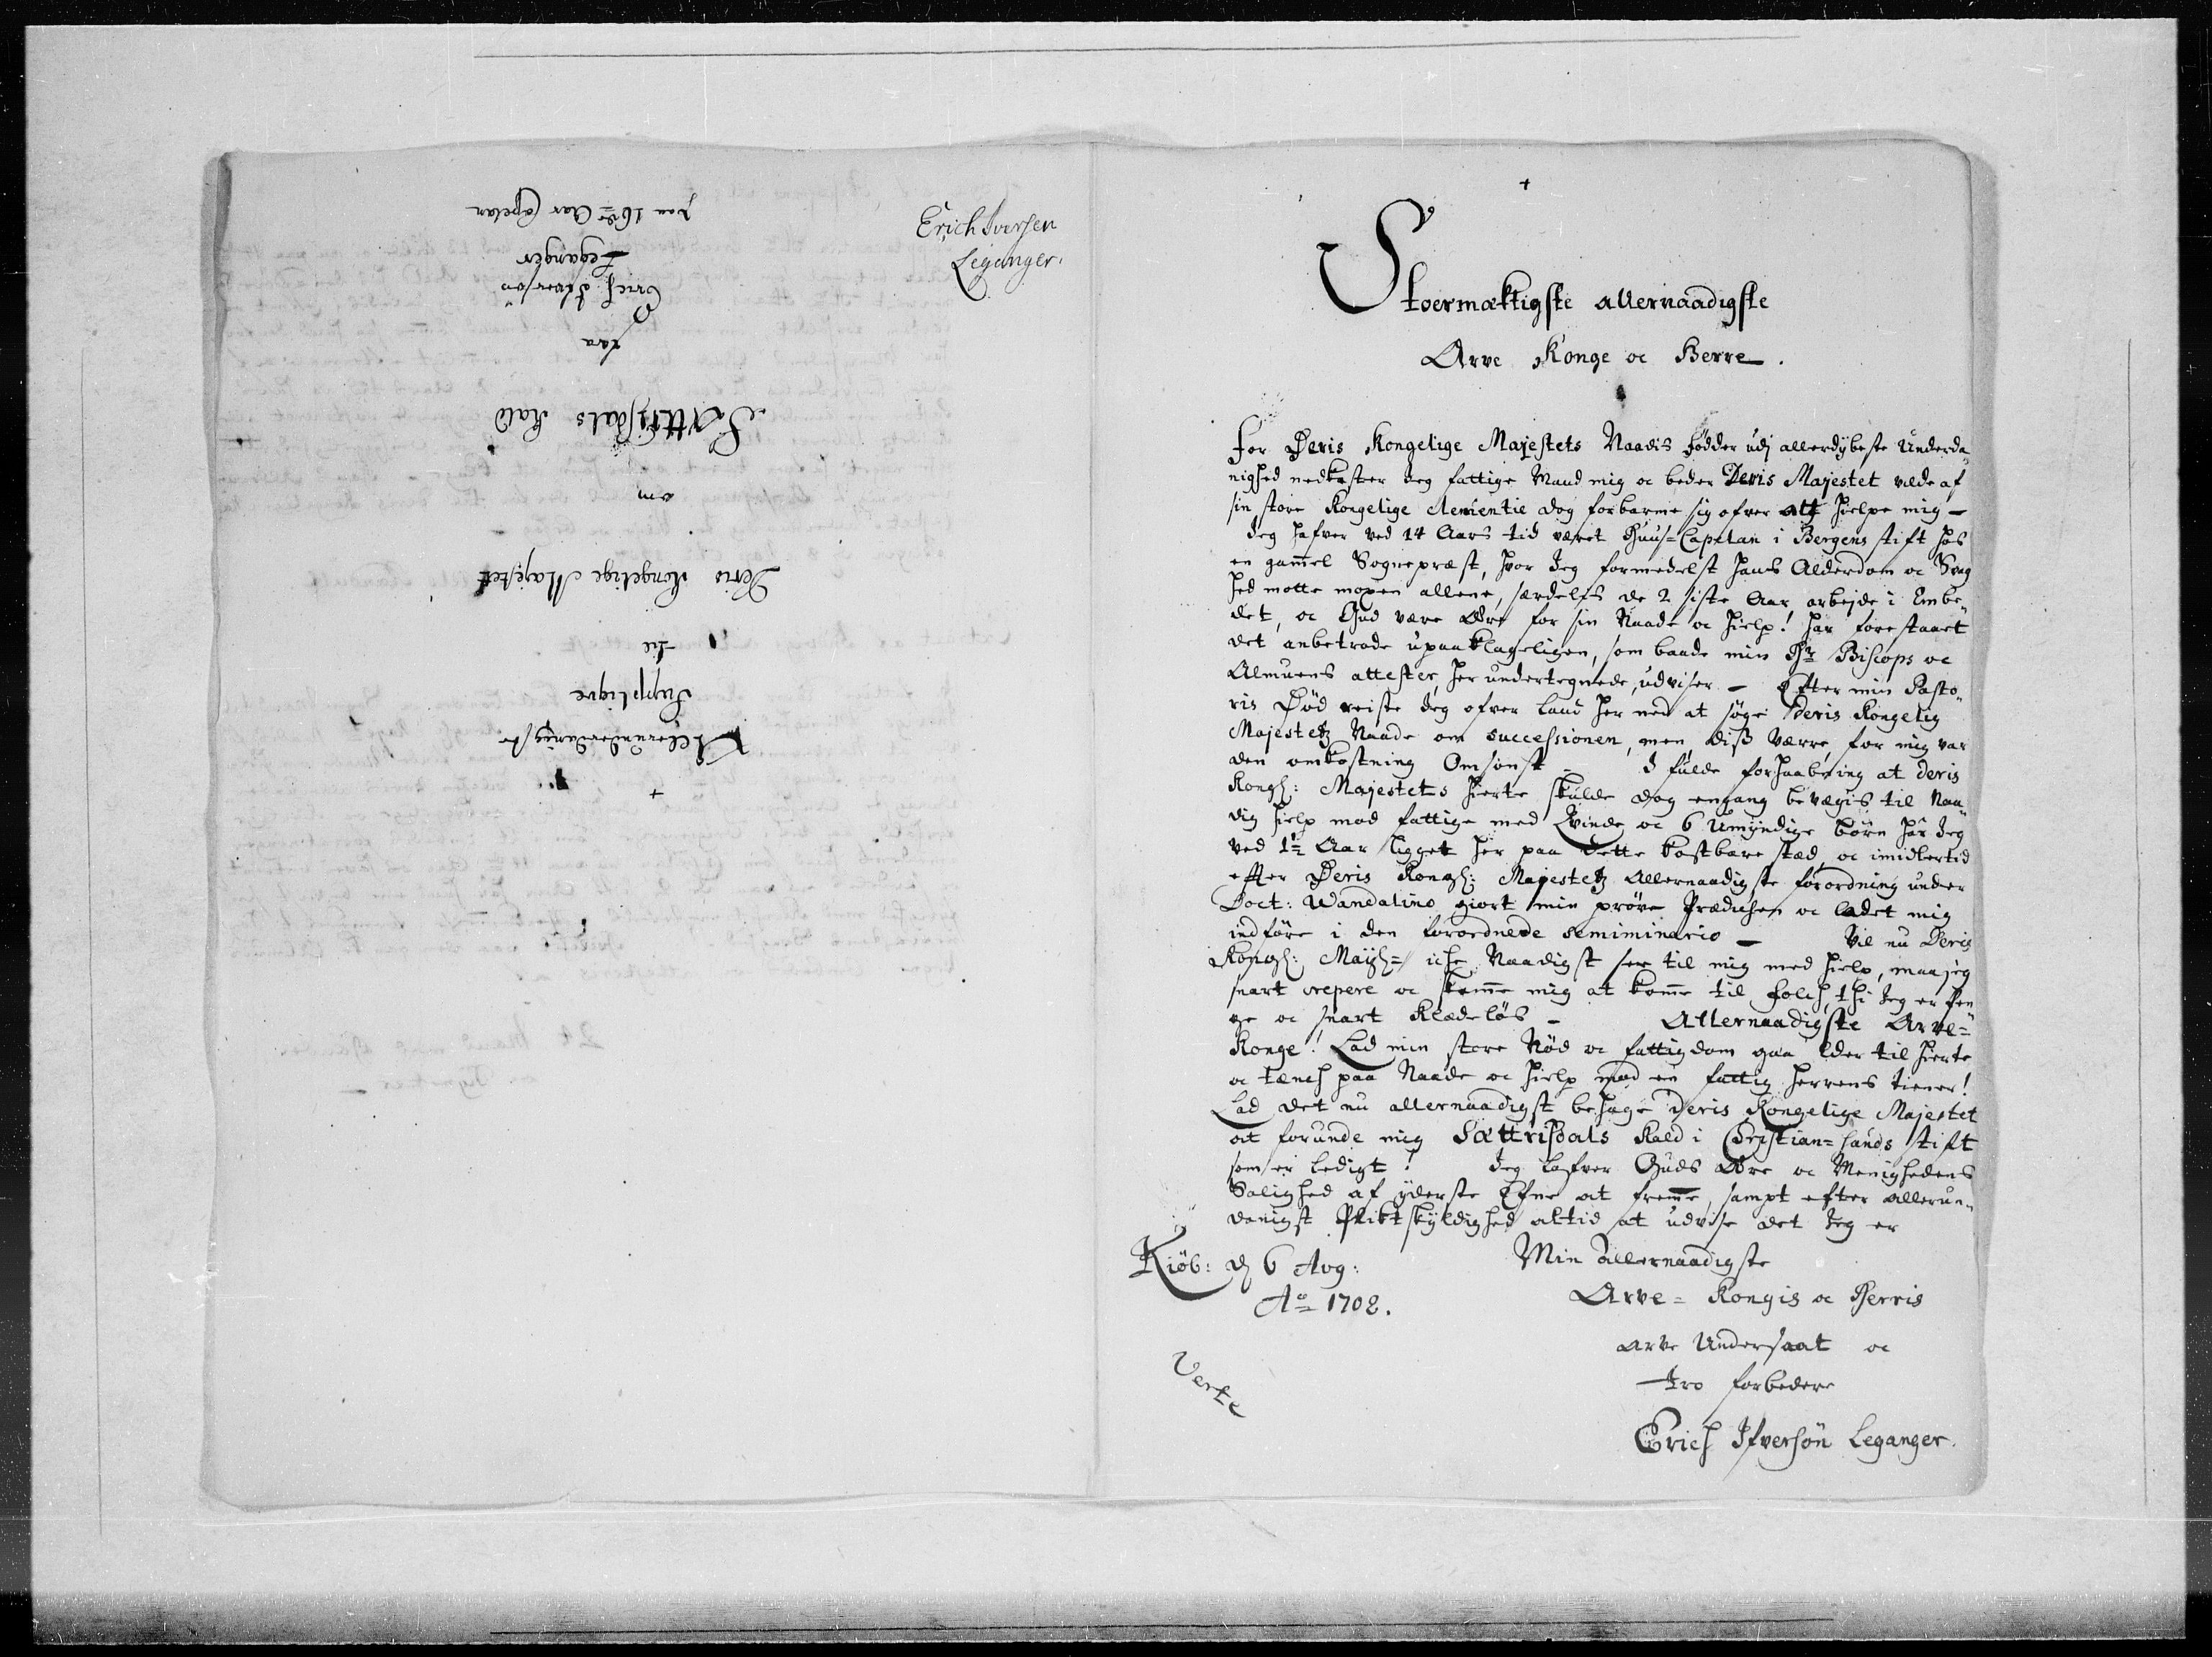 Erich Iversen
Leganger.
+
Allerunderdanigste
Supplique
til
Deris Kongelige Majestet
om
Sættisdals Kald
fra
Erich Ifversøn
Leganger
paa 16de Aar Capelan
+
Stoermæktigste allernaadigste
Arve Konge oc Herre.
For Deris Kongelige Majestets Naadis fødder udj allerdybeste Underda„
nighed nedkaster Jeg fattige Mand mig oc beder Deris Majestet vilde af
sin store Kongelige Clementie dog forbarme sig ofver att hielpe mig –
Jeg hafver ved 14 Aars tid været Huus-Capelan i Bergens stift hos
en gamel Sognepræst, hvor Jeg formedelst hans Alderdom oc Svag
hed motte mopen allene, særdelis de 2 siste Aar arbejde i Embe„
det, oc Gud være Ære for sin Naade oc hielp! har forestaaet
det anbetrode upaaklageligen, som baade min Hr Biscops oc
Almuens attester her undertegnede, udviser – Efter min Pasto„
ris Død reiste Jeg ofver land her ned at søge Deris Kongelig
Majestetz Naade om successionen, men diss værre, for mig var
den omkostning Omsonst – I fulde forhaabning at Deris
Kongl: Majestets hierte skulde dog engang bevægis til Naa„
dig hielp mod fattige med Qvinde oc 6 Umyndige børn har Jeg
ved 1½ Aar ligget her paa dette kostbare stæd, oc imidlertid
efter Deris Kongl: Majestetz Allernaadigste forordning under
Doct: Wandalino giort min prøve Prædichen oc ladet mig
indføre i den forordnede semiminario – Vil nu Deris
Kongl: Mayl= iche Naadigst see til mig med hielp, maa jeg
snart crepere oc skamme mig at komme til folch, thi Jeg er Pen
ge oc snart Klædeløs – Allernaadigste Arve=
Konge! Lad min store Nød oc fattigdom gaa Eder til hierte
oc tænch paa Naade oc hielp mod en fattig herrens tiener!
Lad det nu allernaadigst behage Deris Kongelige Majestet
at forunde mig Sættrisdals Kald i Christian=sands stift
som er ledigt! Jeg lofver Guds Ære oc Menighedens
Salighed af yderste Efne at fremme, sampt efter allerun„
danigst Pliktskyldighed altid at udvise det Jeg er
Kiøb: d 6 Aug:
Ao 1708.
Min Allernaadigste
Arve= Kongis oc Herris
arve Undersaat oc
tro forbedere
Erich Ifversøn Leganger.
Verte